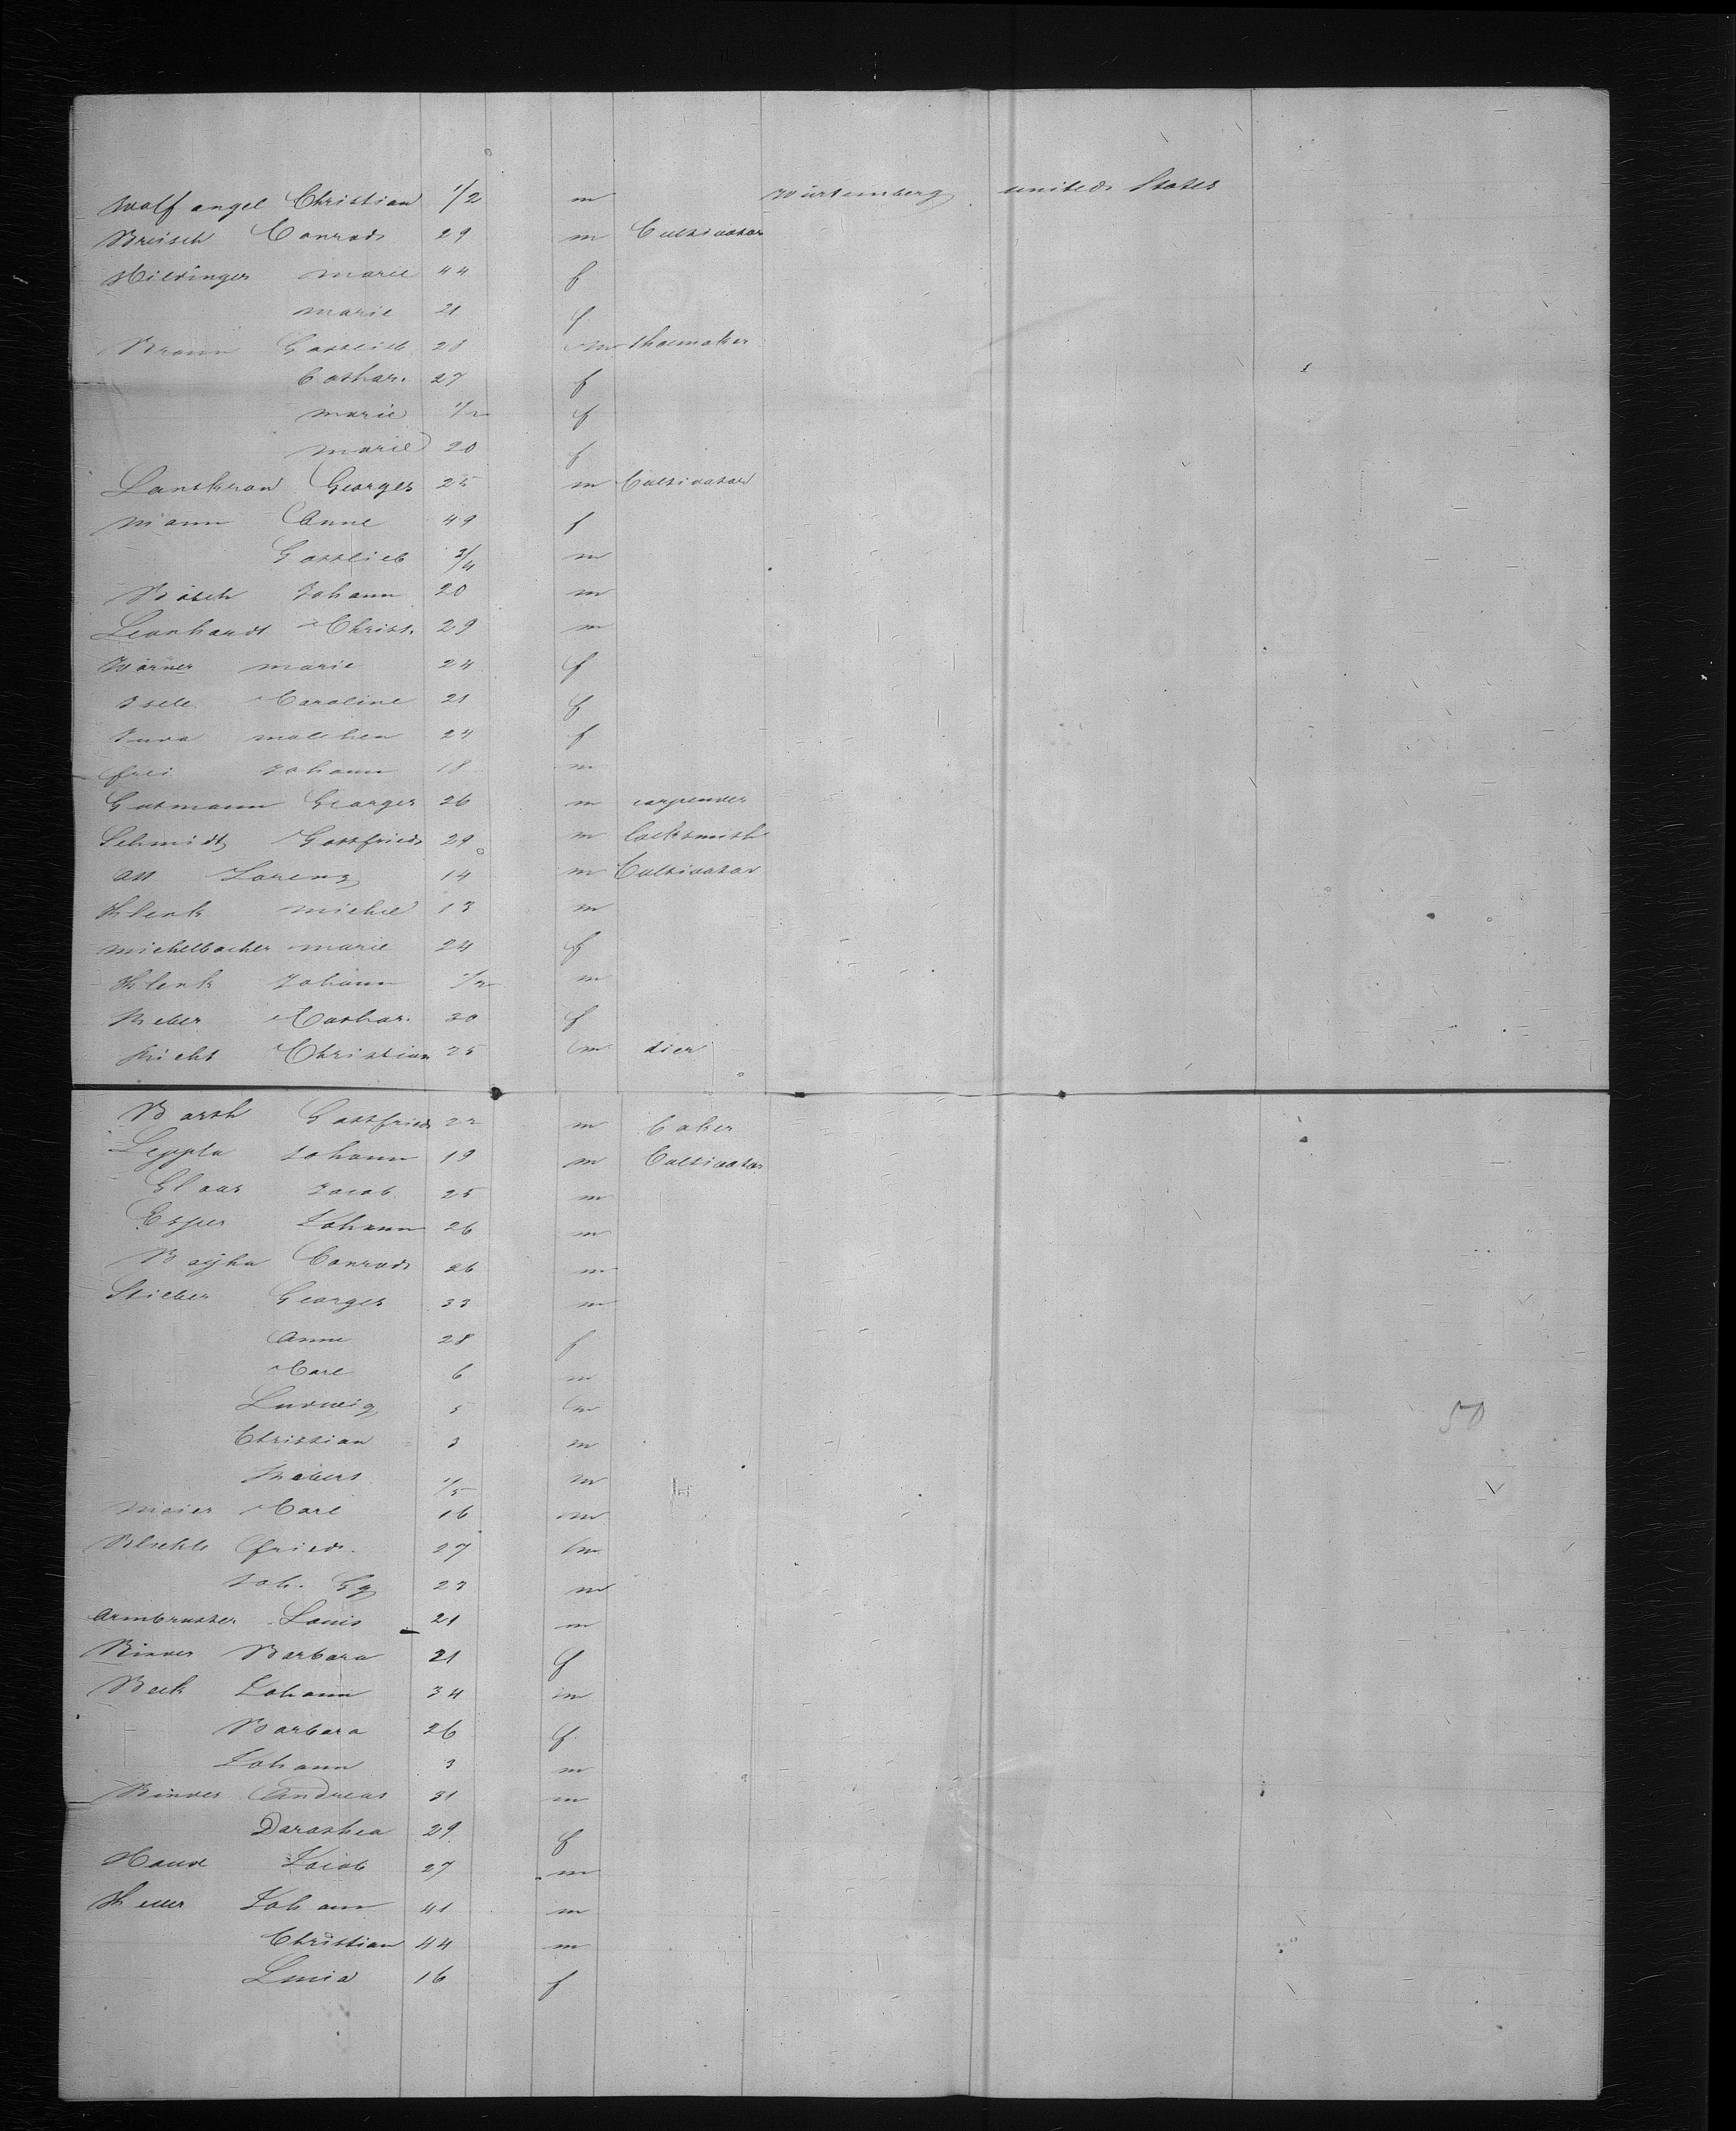 Wolfangel Christian 1/2 m Würtemberg united States
Breisch Conrad 29 m Cultivator
Hildinger Marie 44 f
Marie 21 f
Braun Gottlieb 28 m Shoemaker
Cathar. 27 f
Marie 1/2 f
Marie 20 f
Lanskron Georges 25 m Cultivator
Mann Anne 49 f
Gottlieb 3/4 m
Bösch Johann 20 m
Leonhardt Christ. 29 m
Wörner Marie 24 f
Isele Caroline 21 f
Malchen 24 f
Frei Johann 18 m
Gutmann Georges 26 m carpenter
Schmidt Gottfried 29 m locksmith
Ott Lorenz 14 m Cultivator
Klenk Michel 13 m
Michelbacher Marie 24 f
Klenk Johann 1/2 m
Weber Cathar. 30 f
Christian 25 m dier
Barth Gottfried 22 m baker
Leppla Johann 19 m Cultivator
Glaas Jacob 25 m
Esper Johann 26 m
Conrad 26 m
Stieber Georges 33 m
Anne 28 f
Carl 6 m
Ludwig 5 m
Christian 3 m
1/5 m
Meier Carl 16 m
Fried. 27 m
Joh. Gg 23 m
Armbruster Louis 21 m
Binder Barbara 21 f
Beck Johann 34 m
Barbara 26 f
Johann 3 m
Binder Andreas 31 m
Dorothea 29 f
Jacob 27 m
Johann 41 m
Christian 44 m
16 f
50